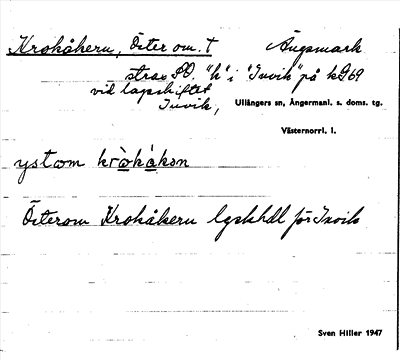 Krokåkern, Öster om. † Ängsmark
strax SO. "h" i "Invik" på kD69
vid lagskiftet
Invik, Ullångers sn, Ångermanl. s. doms. tg.
Västernorrl. l.
ystom kròkåkən
Österom Krokåkern lgskhdl för Invik
Sven Hiller 1947